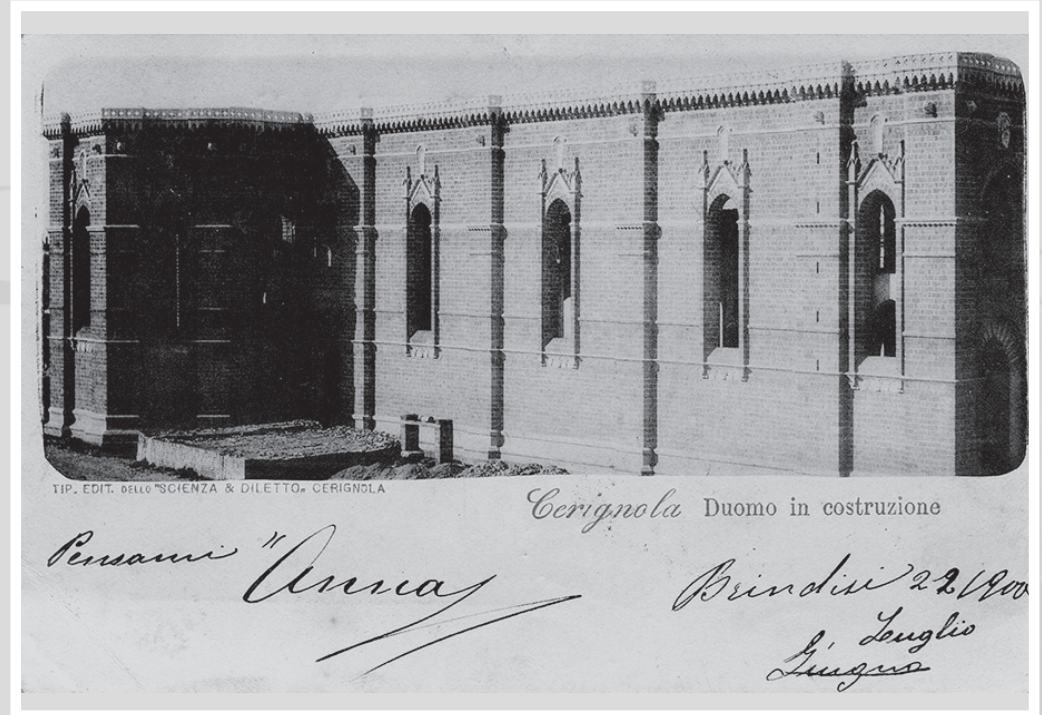 TIP. EDIT. DELLO "SCIENZA & DILETTO„ CERIGNOLA
Cerignola Duomo in costruzione
Pensami "Anna
Brindisi 22/900
Luglio
Giugno